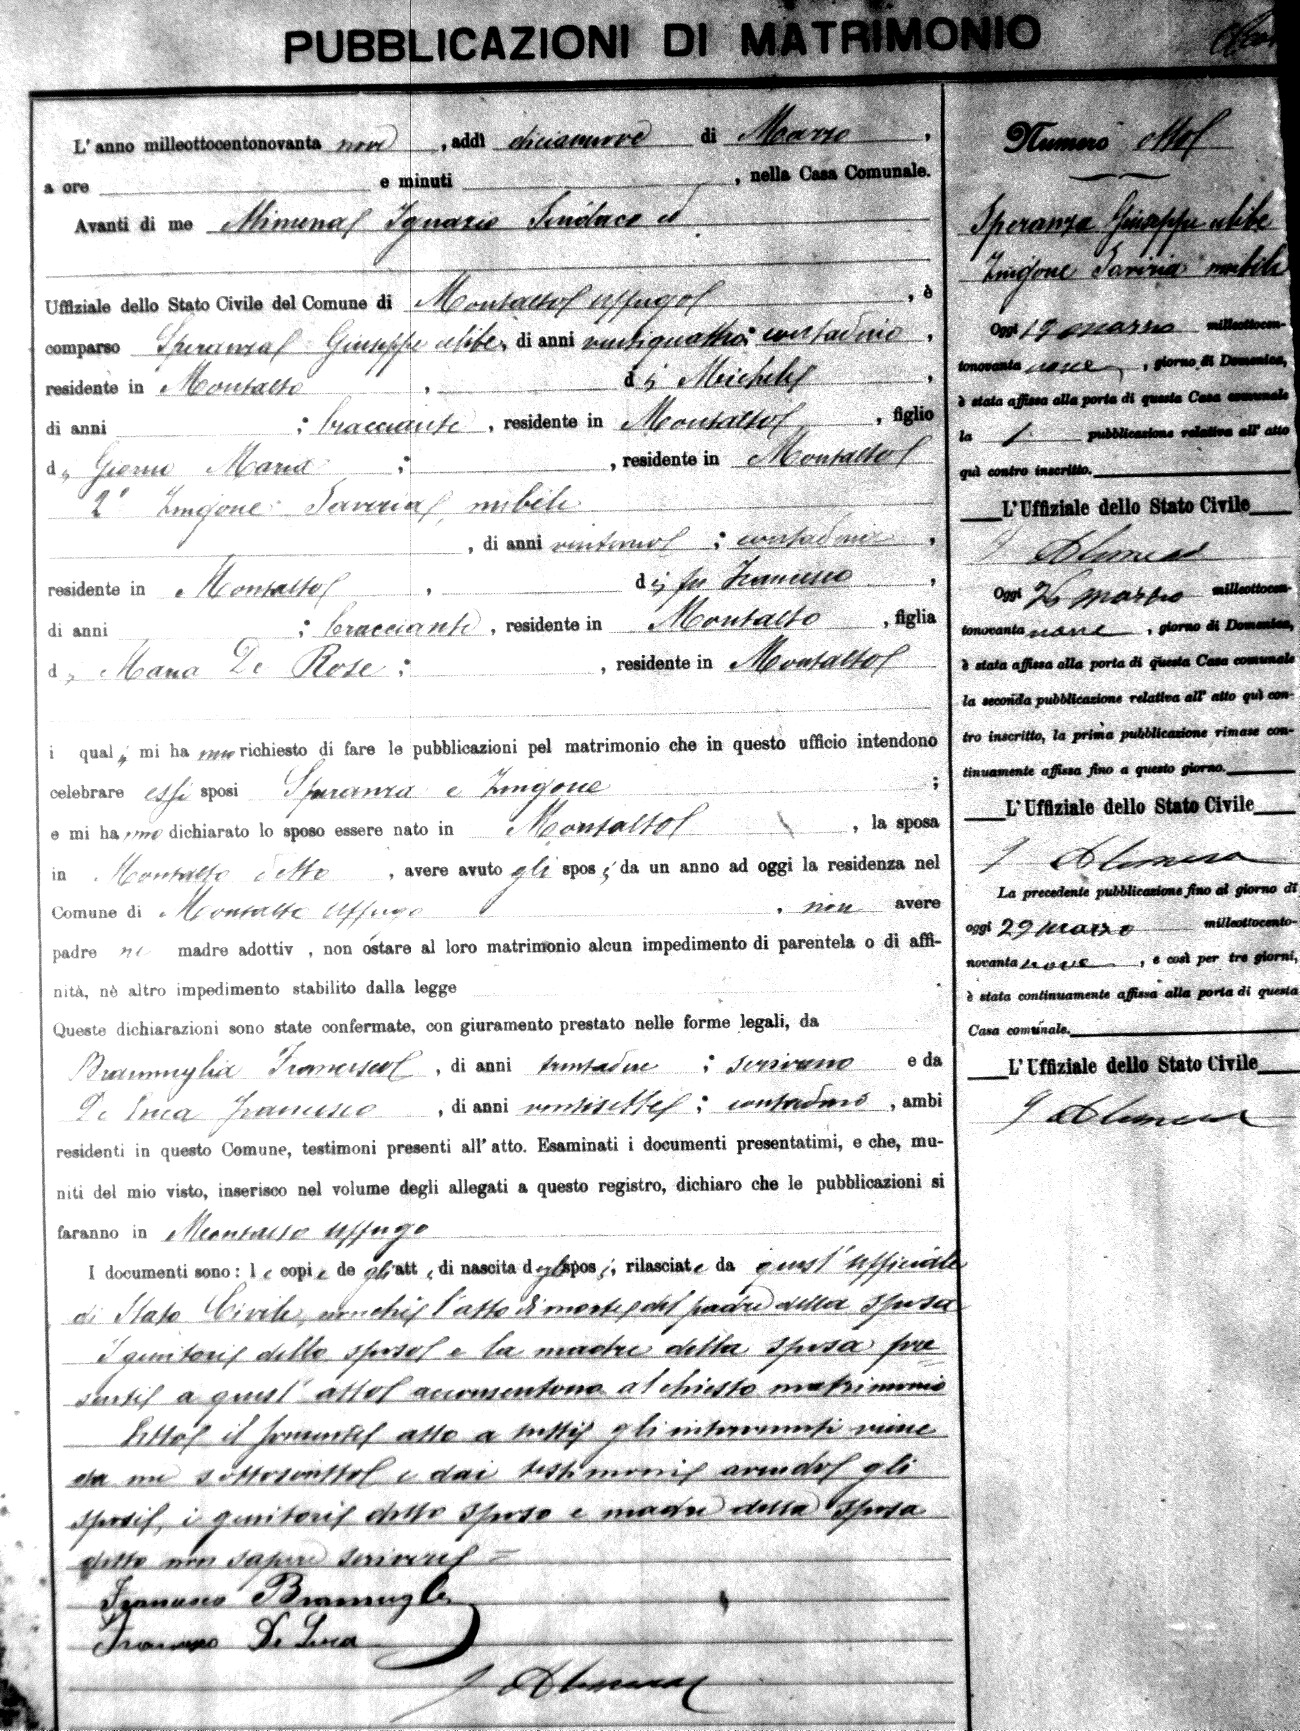 PUBBLICAZIONI DI MATRIMONIO
L'anno milleottocentonovanta nove, addì diciannove di Marzo,
a ore e minuti, nella Casa Comunale.
Avanti di me Ignazio Sindaco ed
Uffiziale dello Stato Civile del Comune di Montalto Uffugo, è
comparso Speranza Giuseppe celibe, di anni ventiquattro; contadino,
residente in Montalto, di Michele,
di anni ; bracciante, residente in Montalto, figlio
di Maria ; , residente in Montalto
2° Zingone Saveria, nubile
, di anni ventuno ; contadina,
residente in Montalto, di fu Francesco,
di anni ; bracciante, residente in Montalto, figlia
di Maria De Rose ; , residente in Montalto
i quali mi hanno richiesto di fare le pubblicazioni pel matrimonio che in questo ufficio intendono
celebrare essi sposi Speranza e Zingone ;
e mi hanno dichiarato lo sposo essere nato in Montalto, la sposa
in Montalto detto, avere avuto gli sposi da un anno ad oggi la residenza nel
Comune di Montalto Uffugo, non avere
padre nè madre adottiv , non ostare al loro matrimonio alcun impedimento di parentela o di affi-
nità, nè altro impedimento stabilito dalla legge .
Queste dichiarazioni sono state confermate, con giuramento prestato nelle forme legali, da
Bramuglia Francesco, di anni trentadue ; scrivano e da
De Luca Francesco, di anni ventisette ; contadino, ambi
residenti in questo Comune, testimoni presenti all'atto. Esaminati i documenti presentatimi, e che, mu-
niti del mio visto, inserisco nel volume degli allegati a questo registro, dichiaro che le pubblicazioni si
faranno in Montalto Uffugo
I documenti sono: le copie degli atti di nascita degli sposi, rilasciate da quest'Ufficiale
di Stato Civile, nonchè l'atto di morte del padre della sposa
I genitori dello sposo e la madre della sposa pre=
senti a quest'atto acconsentono al chiesto matrimonio
Letto il presente atto a tutti gli intervenuti viene
da me sottoscritto e dai testimoni avendo gli
sposi, i genitori dello sposo e madre della sposa
detto non sapere scrivere =
Francesco Bramuglia
Francesco De Luca
Numero otto
Speranza Giuseppe celibe
Zingone Saveria nubile
Oggi 19 marzo milleottocen-
tonovanta nove, giorno di Domenica,
è stata affissa alla porta di questa Casa comunale
la 1ª pubblicazione relativa all'atto
quì contro inscritto.
L'Uffiziale dello Stato Civile
Oggi 26 marzo milleottocen-
tonovanta nove, giorno di Domenica,
è stata affissa alla porta di questa Casa comunale
la seconda pubblicazione relativa all'atto quì con-
tro inscritto, la prima pubblicazione rimase con-
tinuamente affissa fino a questo giorno.
L'Uffiziale dello Stato Civile
La precedente pubblicazione fino al giorno di
oggi 29 marzo milleottocento-
novanta nove, e così per tre giorni,
è stata continuamente affissa alla porta di questa
Casa comunale.
L'Uffiziale dello Stato Civile